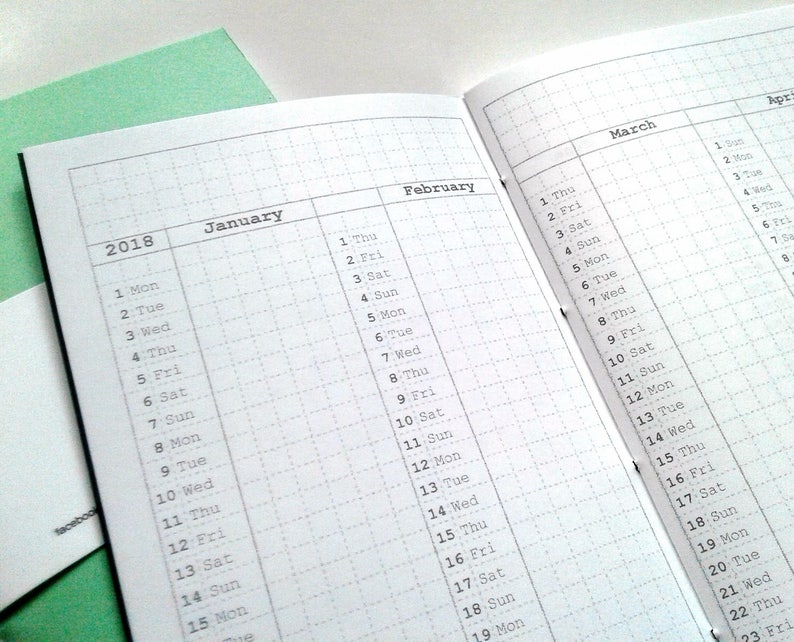 2018 January
1 Mon
2 Tue
3 Wed
4 Thu
5 Fri
6 Sat
7 Sun
8 Mon
9 Tue
10 Wed
11 Thu
12 Fri
13 Sat
14 Sun
15 Mon
Tue
February
1 Thu
2 Fri
3 Sat
4 Sun
5 Mon
6 Tue
7 Wed
8 Thu
9 Fri
10 Sat
11 Sun
12 Mon
13 Tue
14 Wed
15 Thu
16 Fri
17 Sat
18 Sun
19 Mon
March
1 Thu
2 Fri
3 Sat
4 Sun
5 Mon
6 Tue
7 Wed
8 Thu
9 Fri
10 Sat
11 Sun
12 Mon
13 Tue
14 Wed
15 Thu
16 Fri
17 Sat
18 Sun
19 Mon
20 Tue
21 Wed
22 Thu
23 Fri
Apri
1 Sun
2 Mon
3 Tue
4 Wed
5 Thu
6 Fri
7 Sa
8
facebook